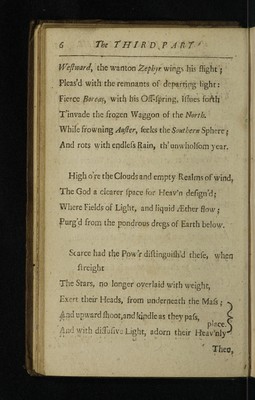 6 The THIRD PART
Weſtward, the wanton Zephyr wings his flight;
Pleas'd with the remnants of departing light:
Fierce Boreas, with his Off-ſpring, Iſſues forth
T'invade the frozen Waggon of the North.
While frowning Auſter, ſeeks the Southern Sphere;
And rots with endleſs Rain, th' unwholſom year.
High o're the Clouds and empty Realms of wind,
The God a clearer ſpace for Heav'n deſign'd;
Where Fields of Light, and liquid Æther flow;
Purg'd from the pondrous dregs of Earth below.
Scarce had the Pow'r diſtinguiſh'd theſe, when
ſtreight
The Stars, no longer overlaid with weight,
Exert their Heads, from underneath the Maſs;
And upward ſhoot, and kindle as they paſs,
place.
And with diffuſive Light, adorn their Heav'nly
Then,